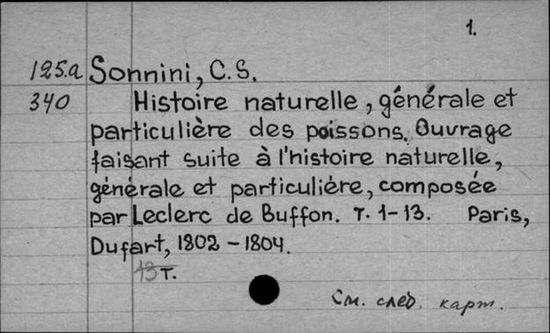 1.
125a Sonnini, C.S.
340 Histoire naturelle, générale et
particulière des poissons. Ouvrage
faisant suite à l'histoire naturelle,
générale et particulière, composée
par Leclerc de Buffon. T. 1-13. Paris,
Dufart, 1802 - 1804.
13 т.
См. след. карт.